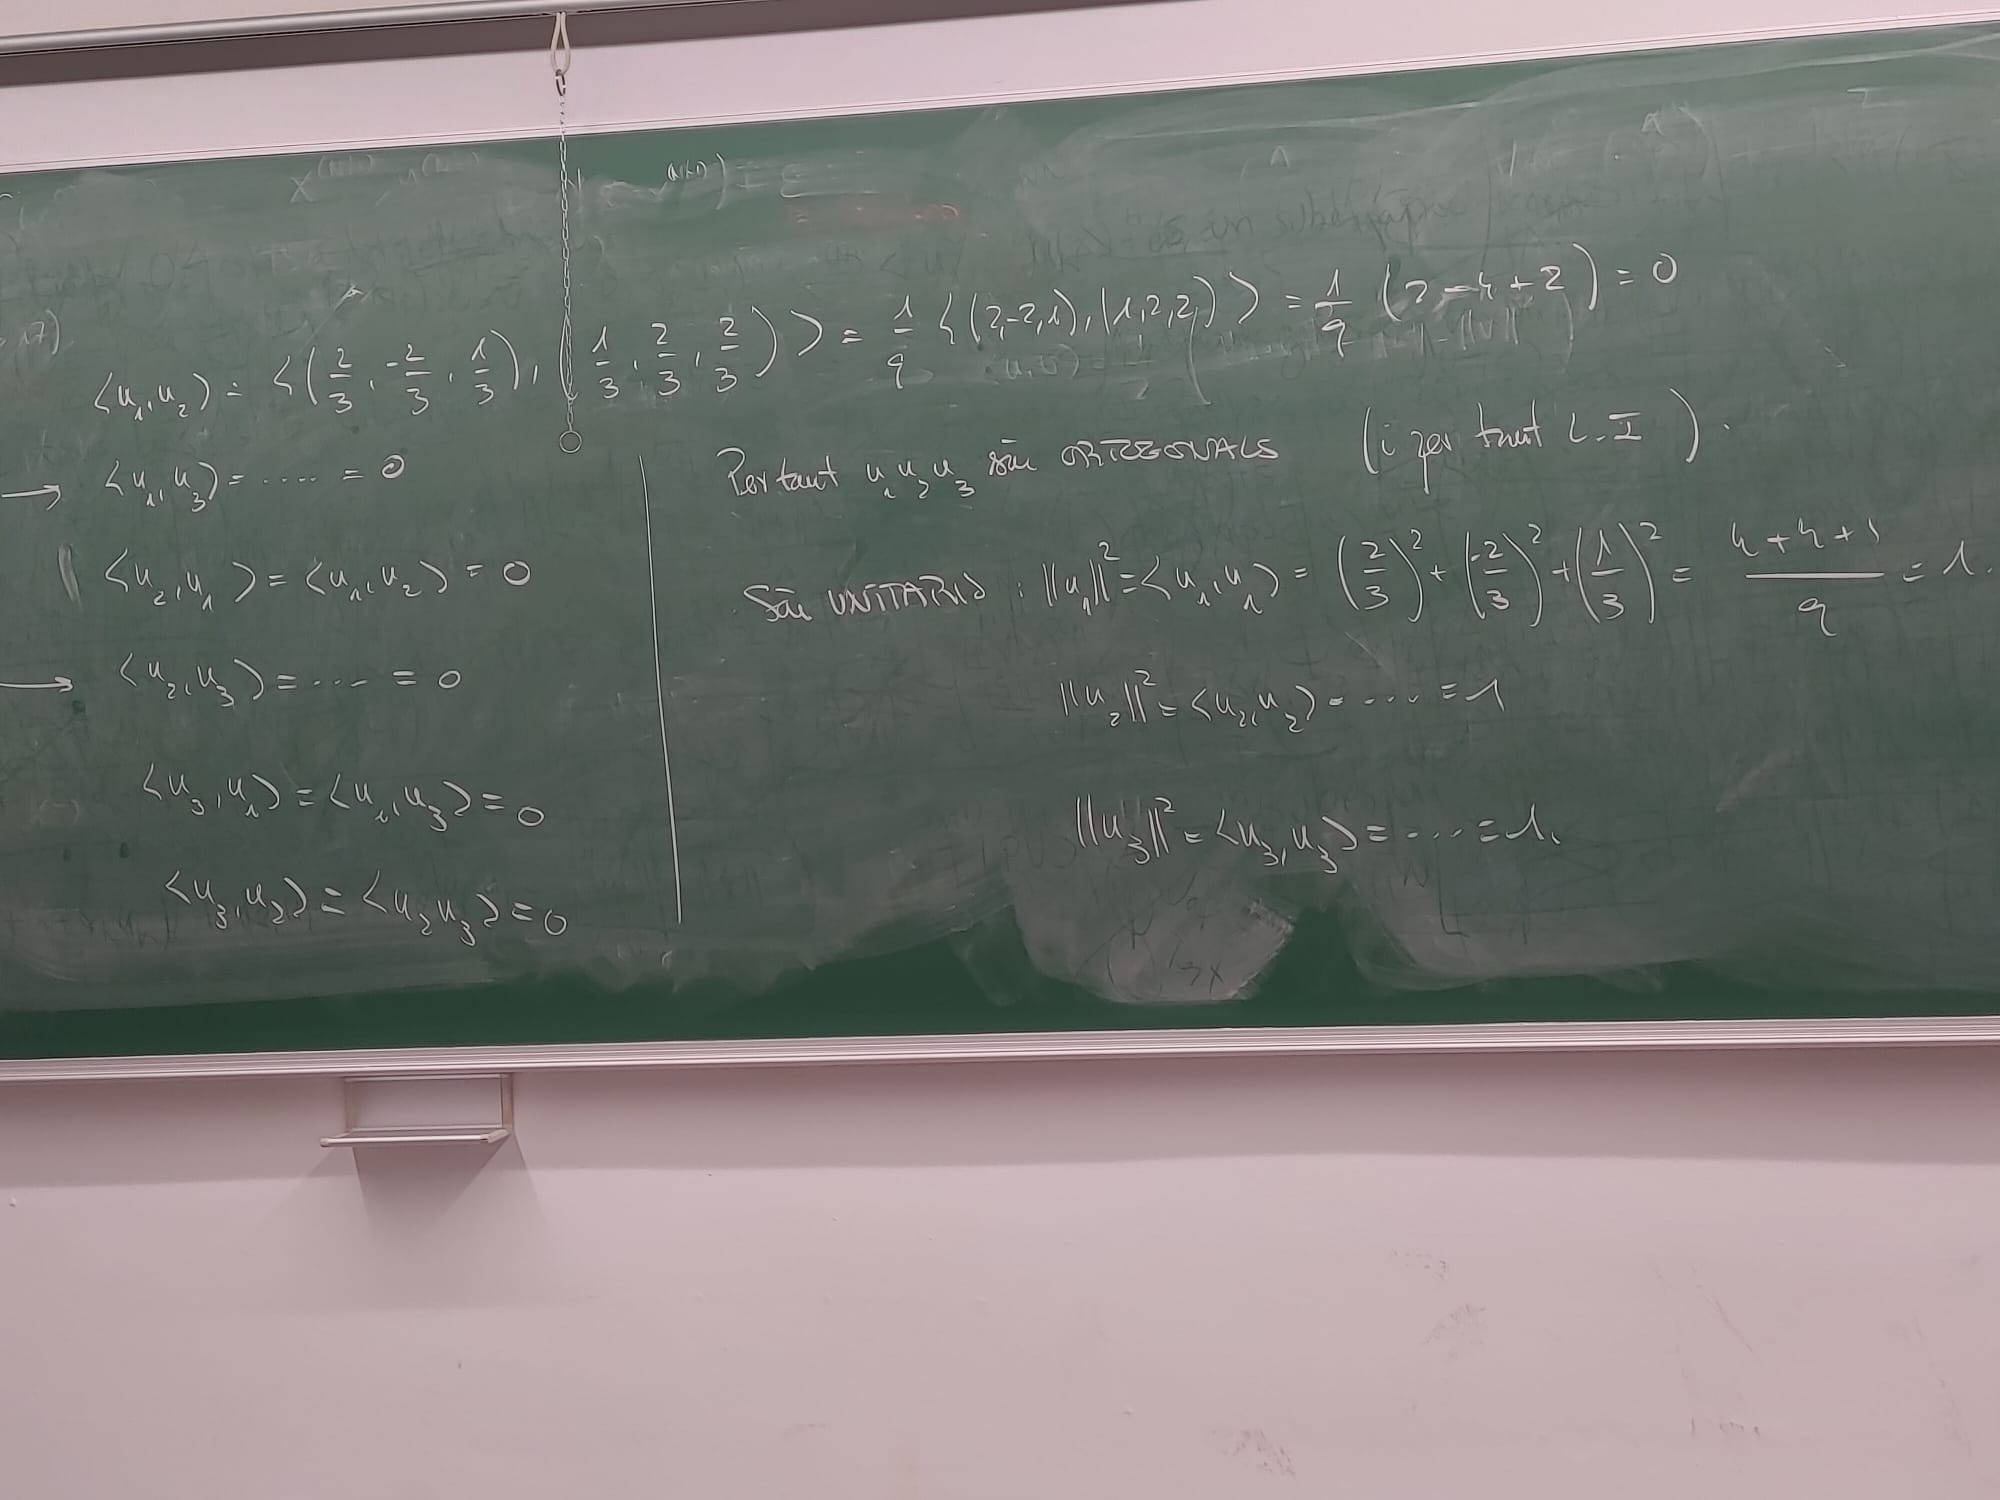 <u₁,u₂> = <(2/3, -2/3, 1/3), (1/3, 2/3, 2/3)> = 1/9 <(2,-2,1), (1,2,2)> = 1/9 (2-4+2) = 0
→ <u₁,u₃> = ..... = 0
<u₂,u₁> = <u₁,u₂> = 0
→ <u₂,u₃> = .... = 0
<u₃,u₁> = <u₁,u₃> = 0
<u₃,u₂> = <u₂u₃> = 0
Per tant u₁u₂u₃ són ORTOGONALS (i per tant L.I).
Són UNITARIS : ||u₁||² = <u₁,u₁> = (2/3)² + (-2/3)² + (1/3)² = (4+4+1)/9 = 1.
||u₂||² = <u₂,u₂> = ..... = 1
||u₃||² = <u₃,u₃> = .... = 1.